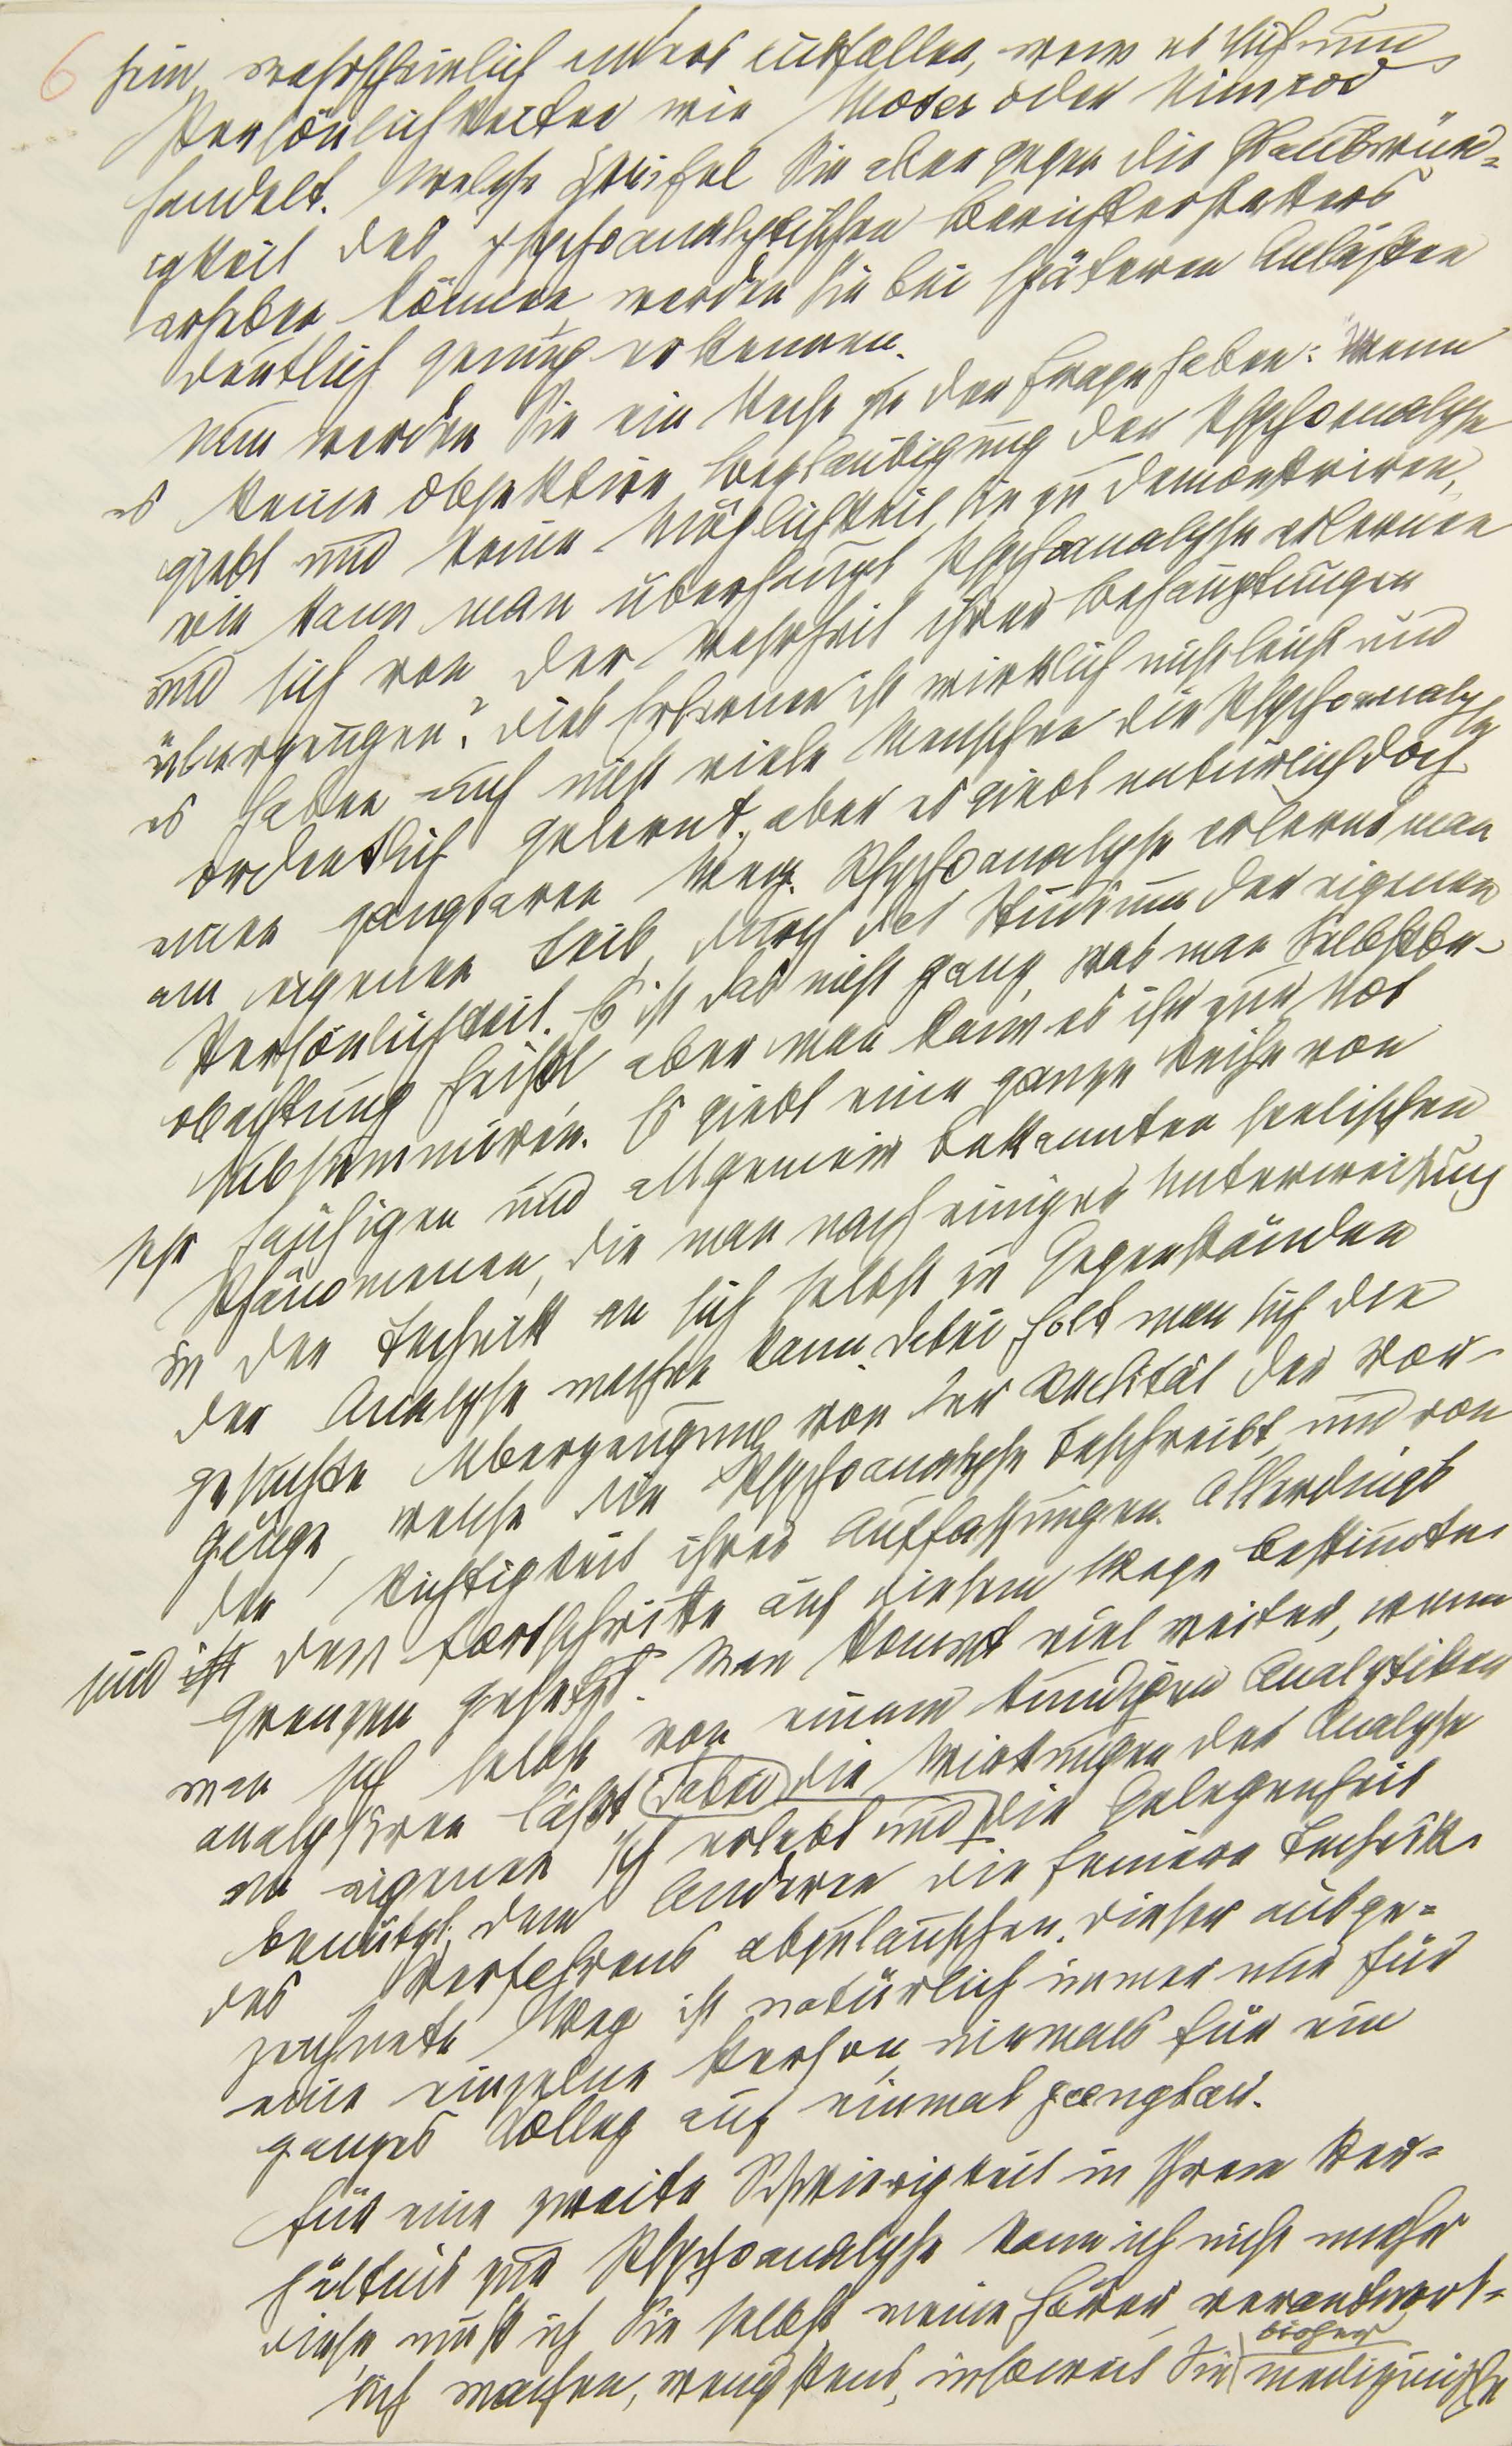 6 hin, wahrscheinlich anders ausfallen, wenn es sich um
Persönlichkeiten wie Moses oder Nimrod
handelt. Welche Zweifel Sie aber gegen die Glaubwür=
igkeit des psychoanalytischen Berichterstatters
erheben können, werden Sie bei späteren Anlässen
deutlich genug erkennen.
Nun werden Sie ein Recht zu der Frage haben: Wenn
es keine objektive Beglaubigung der Psychoanalyse
giebt und keine Möglichkeit, sie zu demonstriren,
wie kann man überhaupt Psychoanalyse erlernen
und sich von der Wahrheit ihrer Behauptungen
überzeugen? Dies Erlernen ist wirklich nicht leicht und
es haben auch nicht viele Menschen die Psychoanalyse
ordentlich gelernt, aber es giebt natürlich doch
einen gangbaren Weg. Psychoanalyse erlernt man
am eigenen Leib, durch das Studium der eigenen
Persönlichkeit. Es ist das nicht ganz, was man Selbstbe-
obachtung heißt, aber man kann es ihr zur Not
subsummiren. Es giebt eine ganze Reihe von
sehr häufigen und allgemein bekannten seelischen
Phänomenen, die man nach einiger Unterweisung
in der Technik an sich selbst zu Gegenständen
der Analyse machen kann. Dabei holt man sich die
gesuchte Überzeugung von der Realität der Vor-
gänge, welche die Psychoanalyse beschreibt, und von
der Richtigkeit ihrer Auffassungen. Allerdings
sind ist dem Fortschritte auf diesem Wege bestimmte
Grenzen gesetzt. Man kommt viel weiter, wenn
man sich selbst von einem kundigen Analytiker
analysiren läßt, dabei die Wirkungen der Analyse
am eigenen Ich erlebt und die Gelegenheit
benützt, dem Anderen die feinere Technik
des Verfahrens abzulauschen. Dieser ausge=
zeichnete Weg ist natürlich immer nur für
eine einzelne Person, niemals für ein
ganzes Kolleg auf einmal gangbar.
Für eine zweite Schwierigkeit in Ihrem Ver=
hältnis zur Psychoanalyse kann ich nicht mehr
diese, muß ich Sie selbst, meine Hörer, verantwort=
lich machen, wenigstens, insoweit Sie bisher medizinische